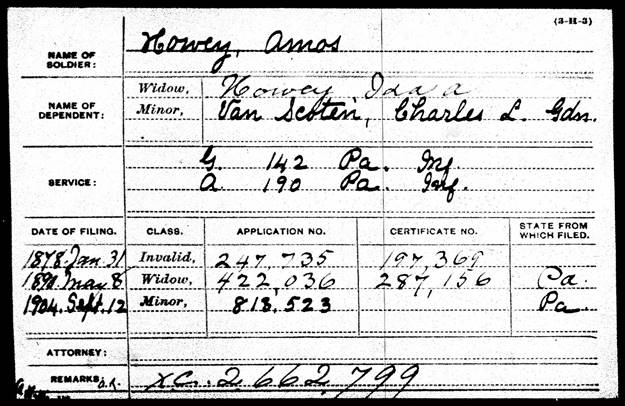 (3-H-3)
NAME OF SOLDIER: Howey, Amos
NAME OF DEPENDENT: Widow, Howey Ida A
Minor, Van Scoten, Charles L. Gdn.
SERVICE: G. 142 Pa. Inf
A. 190 Pa. Inf.
DATE OF FILING. CLASS. APPLICATION NO. CERTIFICATE NO. STATE FROM WHICH FILED.
1878. Jan. 31 Invalid, 247,735 197,369
May 8 Widow, 422,036 287,156 Pa.
1904. Sept. 12 Minor, 813,523 Pa.
ATTORNEY:
REMARKS: XC. 2 662 799